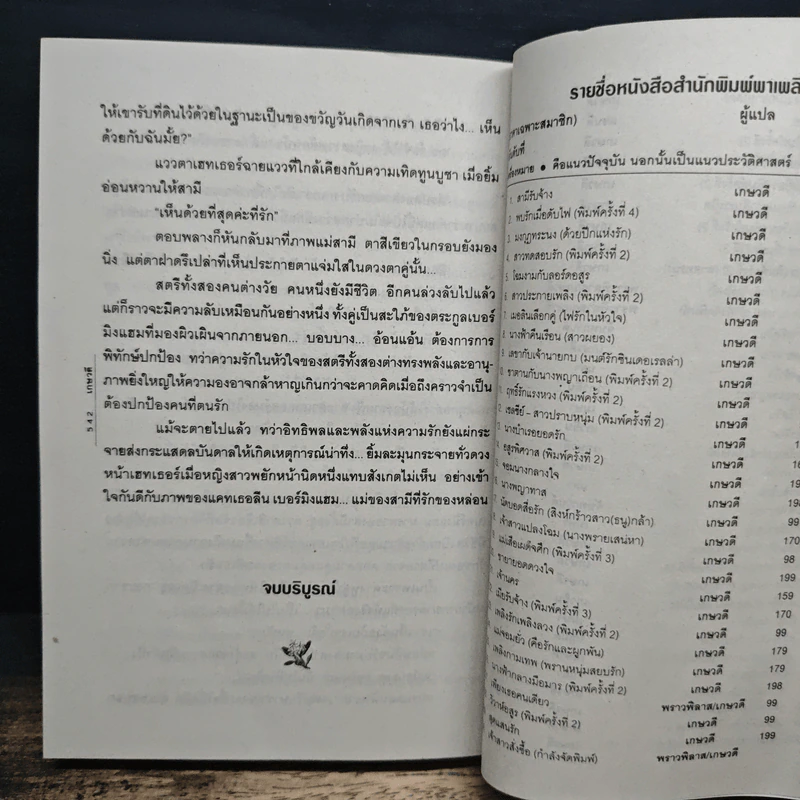 ให้เขารับที่ดินไว้ด้วยในฐานะเป็นของขวัญวันเกิดจากเรา เธอว่าไง... เห็น
ด้วยกับฉันมั้ย?"
แววตาเฮทเธอร์ฉายแววที่ใกล้เคียงกับความเทิดทูนบูชา เมื่อยิ้ม
อ่อนหวานให้สามี
"เห็นด้วยที่สุดค่ะที่รัก"
ตอบพลางก็หันกลับมาที่ภาพแม่สามี ตาสีเขียวในกรอบยังมอง
นิ่ง แต่ตาฝาดรึเปล่าที่เห็นประกายตาแจ่มใสในดวงตาคู่นั้น...
สตรีทั้งสองคนต่างวัย คนหนึ่งยังมีชีวิต อีกคนล่วงลับไปแล้ว
แต่ก็ราวจะมีความลับเหมือนกันอย่างหนึ่ง ทั้งคู่เป็นสะใภ้ของตระกูลเบอร์
มิงแฮมที่มองผิวเผินจากภายนอก... บอบบาง... อ้อนแอ้น ต้องการการ
พิทักษ์ปกป้อง ทว่าความรักในหัวใจของสตรีทั้งสองต่างทรงพลังและอานุ-
ภาพยิ่งใหญ่ให้ความองอาจกล้าหาญเกินกว่าจะคาดคิดเมื่อถึงคราวจำเป็น
ต้องปกป้องคนที่ตนรัก
แม้จะตายไปแล้ว ทว่าอิทธิพลและพลังแห่งความรักยังแผ่กระ
จายส่งกระแสดลบันดาลให้เกิดเหตุการณ์น่าทึ่ง... ยิ้มละมุนกระจายทั่วดวง
หน้าเฮทเธอร์เมื่อหญิงสาวพยักหน้านิดหนึ่งแทบสังเกตไม่เห็น อย่างเข้า
ใจกันดีกับภาพของแคทเธอลีน เบอร์มิงแฮม... แม่ของสามีที่รักของหล่อน
จบบริบูรณ์
542 เกษวดี
รายชื่อหนังสือสำนักพิมพ์พาเพลิ
เฉพาะสมาชิก) ผู้แปล
ดับที่
หมาย ● คือแนวปัจจุบัน นอกนั้นเป็นแนวประวัติศาสตร์
1. สามีรับจ้าง เกษวดี
2. พบรักเมื่อดับไฟ (พิมพ์ครั้งที่ 4) เกษวดี
3. มงกุฎทระนง (ด้วยปีกแห่งรัก) เกษวดี
4. สาวทดสอบรัก (พิมพ์ครั้งที่ 2) เกษวดี
5. โฉมงามกับลอร์ดอสูร เกษวดี
6. สาวประกายเพลิง (พิมพ์ครั้งที่ 2) เกษวดี
7. เมอลินเลือกคู่ (ไฟรักในหัวใจ) เกษวดี
8. นางฟ้าคืนเรือน (สาวผยอง) เกษวดี
เลขากับเจ้านายกบ (มนต์รักซินเดอเรลล่า) เกษวดี
ซาตานกับนางพญาเถื่อน (พิมพ์ครั้งที่ 2) เกษวดี
ฤทธิ์รักแรงหวง (พิมพ์ครั้งที่ 2) เกษวดี
เชลซีย์ - สาวปราบหนุ่ม (พิมพ์ครั้งที่ 2) เกษวดี
นางบำเรอยอดรัก เกษวดี
อสูรพิศวาส (พิมพ์ครั้งที่ 2) เกษวดี
จอมนางกลางใจ เกษวดี
นางพญาทาส เกษวดี
นัดบอดสื่อรัก (สิงห์กร้าวสาว(ธนู)กล้า) เกษวดี
เจ้าสาวแปลงโฉม (นางพรายเสน่หา) เกษวดี 99
แม่เสือเผด็จศึก (พิมพ์ครั้งที่ 3) เกษวดี 170
ชายายอดดวงใจ เกษวดี 98
เจ้านคร เกษวดี 199
เมียรับจ้าง (พิมพ์ครั้งที่ 3) เกษวดี 159
เพลิงรักเพลิงลวง (พิมพ์ครั้งที่ 2) เกษวดี 170
แม่จอมยั่ว (คือรักและผูกพัน) เกษวดี 99
เพลิงกามเทพ (พรานหนุ่มสยบรัก) เกษวดี 179
นางฟ้ากลางมือมาร (พิมพ์ครั้งที่ 2) เกษวดี 179
เพียงเธอคนเดียว เกษวดี 198
วิวาห์อสูร (พิมพ์ครั้งที่ 2) พราวพิลาส/เกษวดี 99
สุดแสนรัก เกษวดี 99
เจ้าสาวสั่งซื้อ (กำลังจัดพิมพ์) เกษวดี 199
พราวพิลาส/เกษวดี